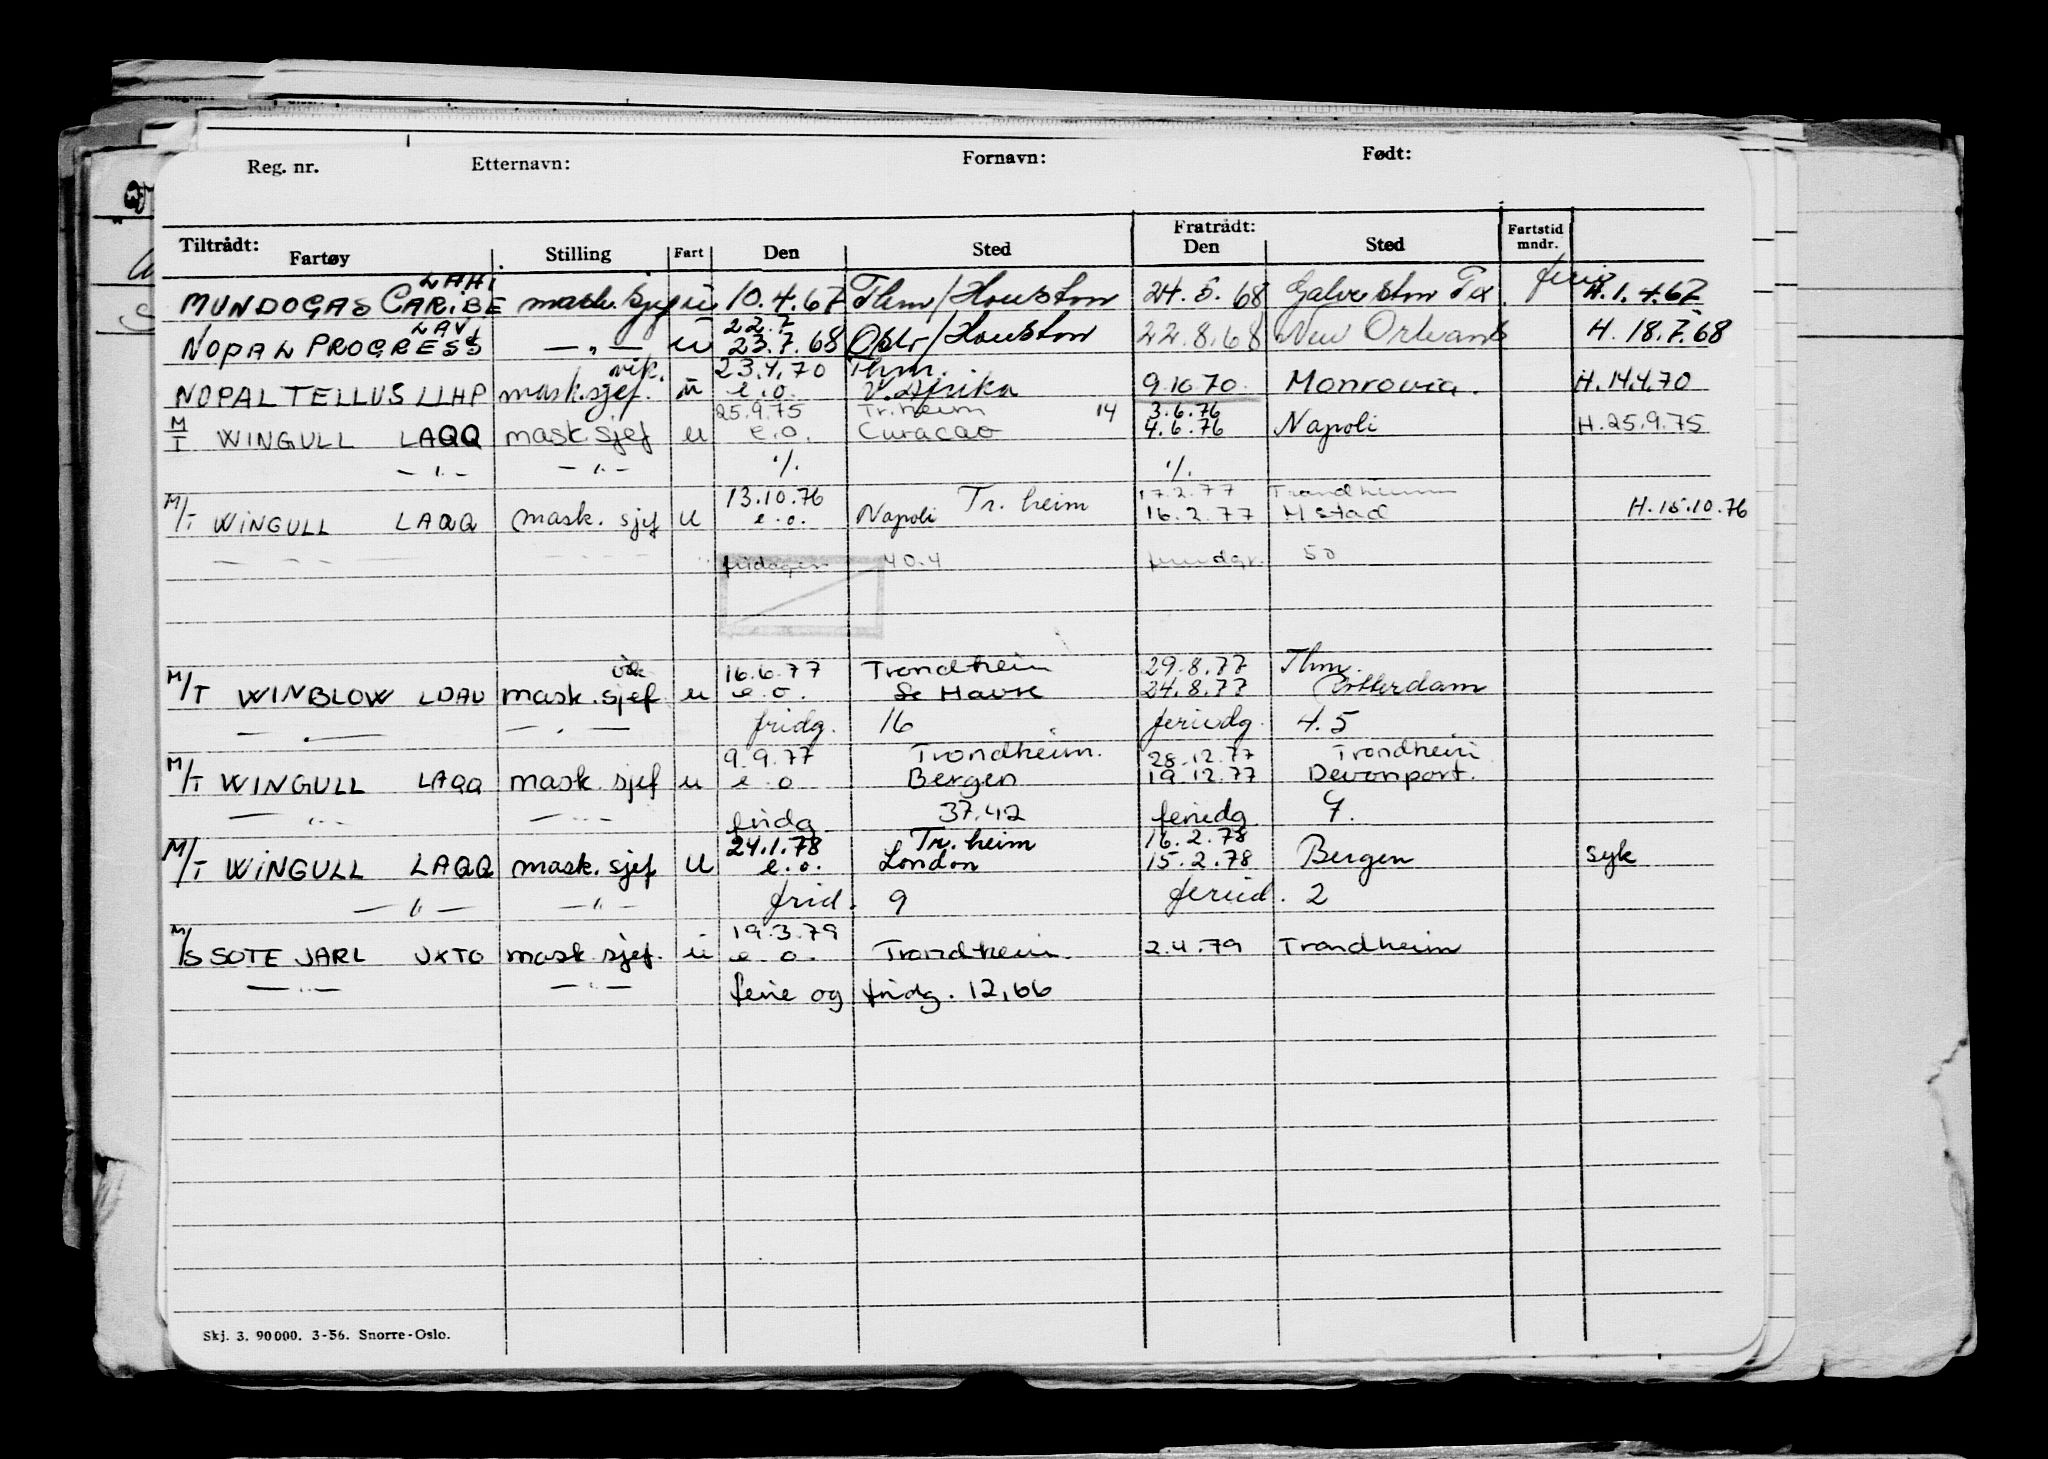 Reg. nr. Etternavn: Fornavn: Født:
Tiltrådt: Fratrådt: Fartstid
Fartøy Stilling Fart Den Sted Den Sted mndr.
LAHI ferie
MUNDOGAS CARIBE mask. sjef u 10.4.67 Thm/Houston 24.5.68 Galveston Tex. H.1.4.67
LAV 22.7
NOPAL PROGRESS — „ — u 23.7.68 Oslo/Houston 22.8.68 New Orleans H. 18.7.68
vik. 23.4.70 Thm.
NOPAL TELLUS LLHP mask.sjef. u e.o. V. Afrika 9.10.70. Monrovia. H.14.4.70
25.9.75 Tr.heim 14 3.6.76
M/T WINGULL LAQQ mask.sjef u e.o. Curacao 4.6.76 Napoli H.25.9.75
— " — — " — ./. ./.
13.10.76 Tr. heim 17.2.77 Trondheim
M/T WINGULL LAQQ mask. sjef u e.o. Napoli 16.2.77 H.15.10.76
— " — — " — fridager 40.4 feriedgr. 50
vik 16.6.77 Trondheim 29.8.77 Thm.
M/T WINBLOW LDAU mask.sjef u e.o. Le Havre 24.8.77 Rotterdam
— " — — " — fridg. 16 feriedg. 4.5
9.9.77 Trondheim. 28.12.77 Trondheim
M/T WINGULL LAQQ mask. sjef u e.o Bergen 19.12.77 Devonport.
— " — — " — fridg. 37.42 feriedg. 9.
24.1.78 Tr. heim 16.2.78
M/T WINGULL LAQQ mask. sjef u e.o. London 15.2.78 Bergen syk
— " — — " — frid. 9 feried. 2
19.3.79
M/S SOTE JARL JXTO mask. sjef. u e.o. Trondheim. 2.4.79 Trondheim
— " — — " — ferie og fridg. 12,66
Skj. 3. 90000. 3-56. Snorre-Oslo.